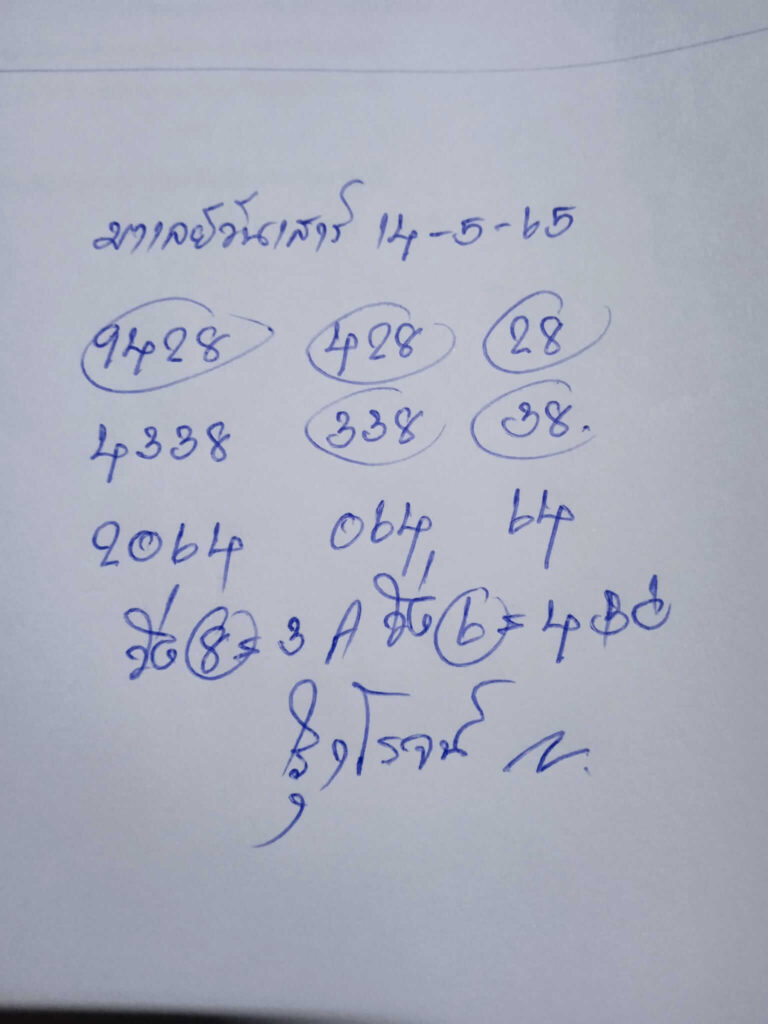 มาเลย์วันเสาร์ 14-5-65
9428 428 28
4338 338 38.
2064 064 64
วิ่ง 8 = 3 A วิ่ง 6 = 4
โรจน์